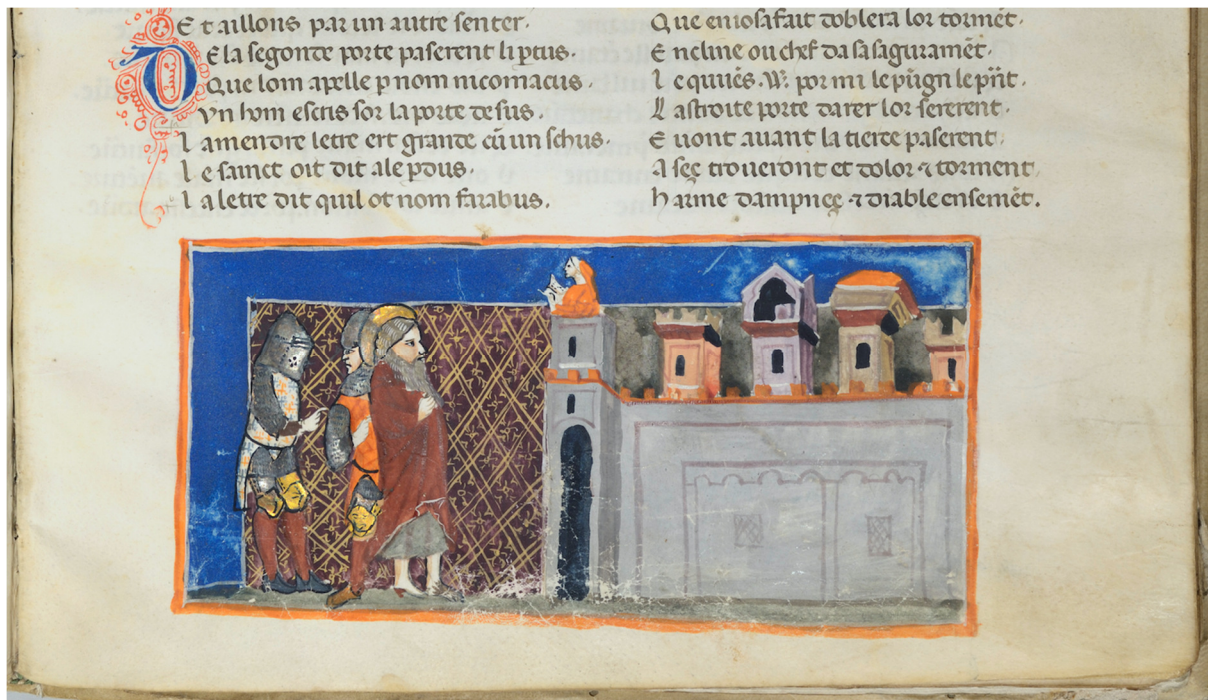 E t taillons par un autre senter.
D E la segonde porte paserent li ꝑtus.
Q ue lom apelle ꝑ nom nicomacus.
V n hom escris sor la porte de sus.
L a mendre letre ert grande cū un schus.
L e sainct oit dit ale ꝑdus.
L a letre dit quil ot nom farabus.
Q ue eniosa fait doblera lor tormēt.
E ncline ou chef da sa saguramēt.
L astroite porte darer lor sererent.
E uont auant la tierce paserent.
A seç troueront et dolor ⁊ torment.
h arme dampneç ⁊ diable ensemēt.